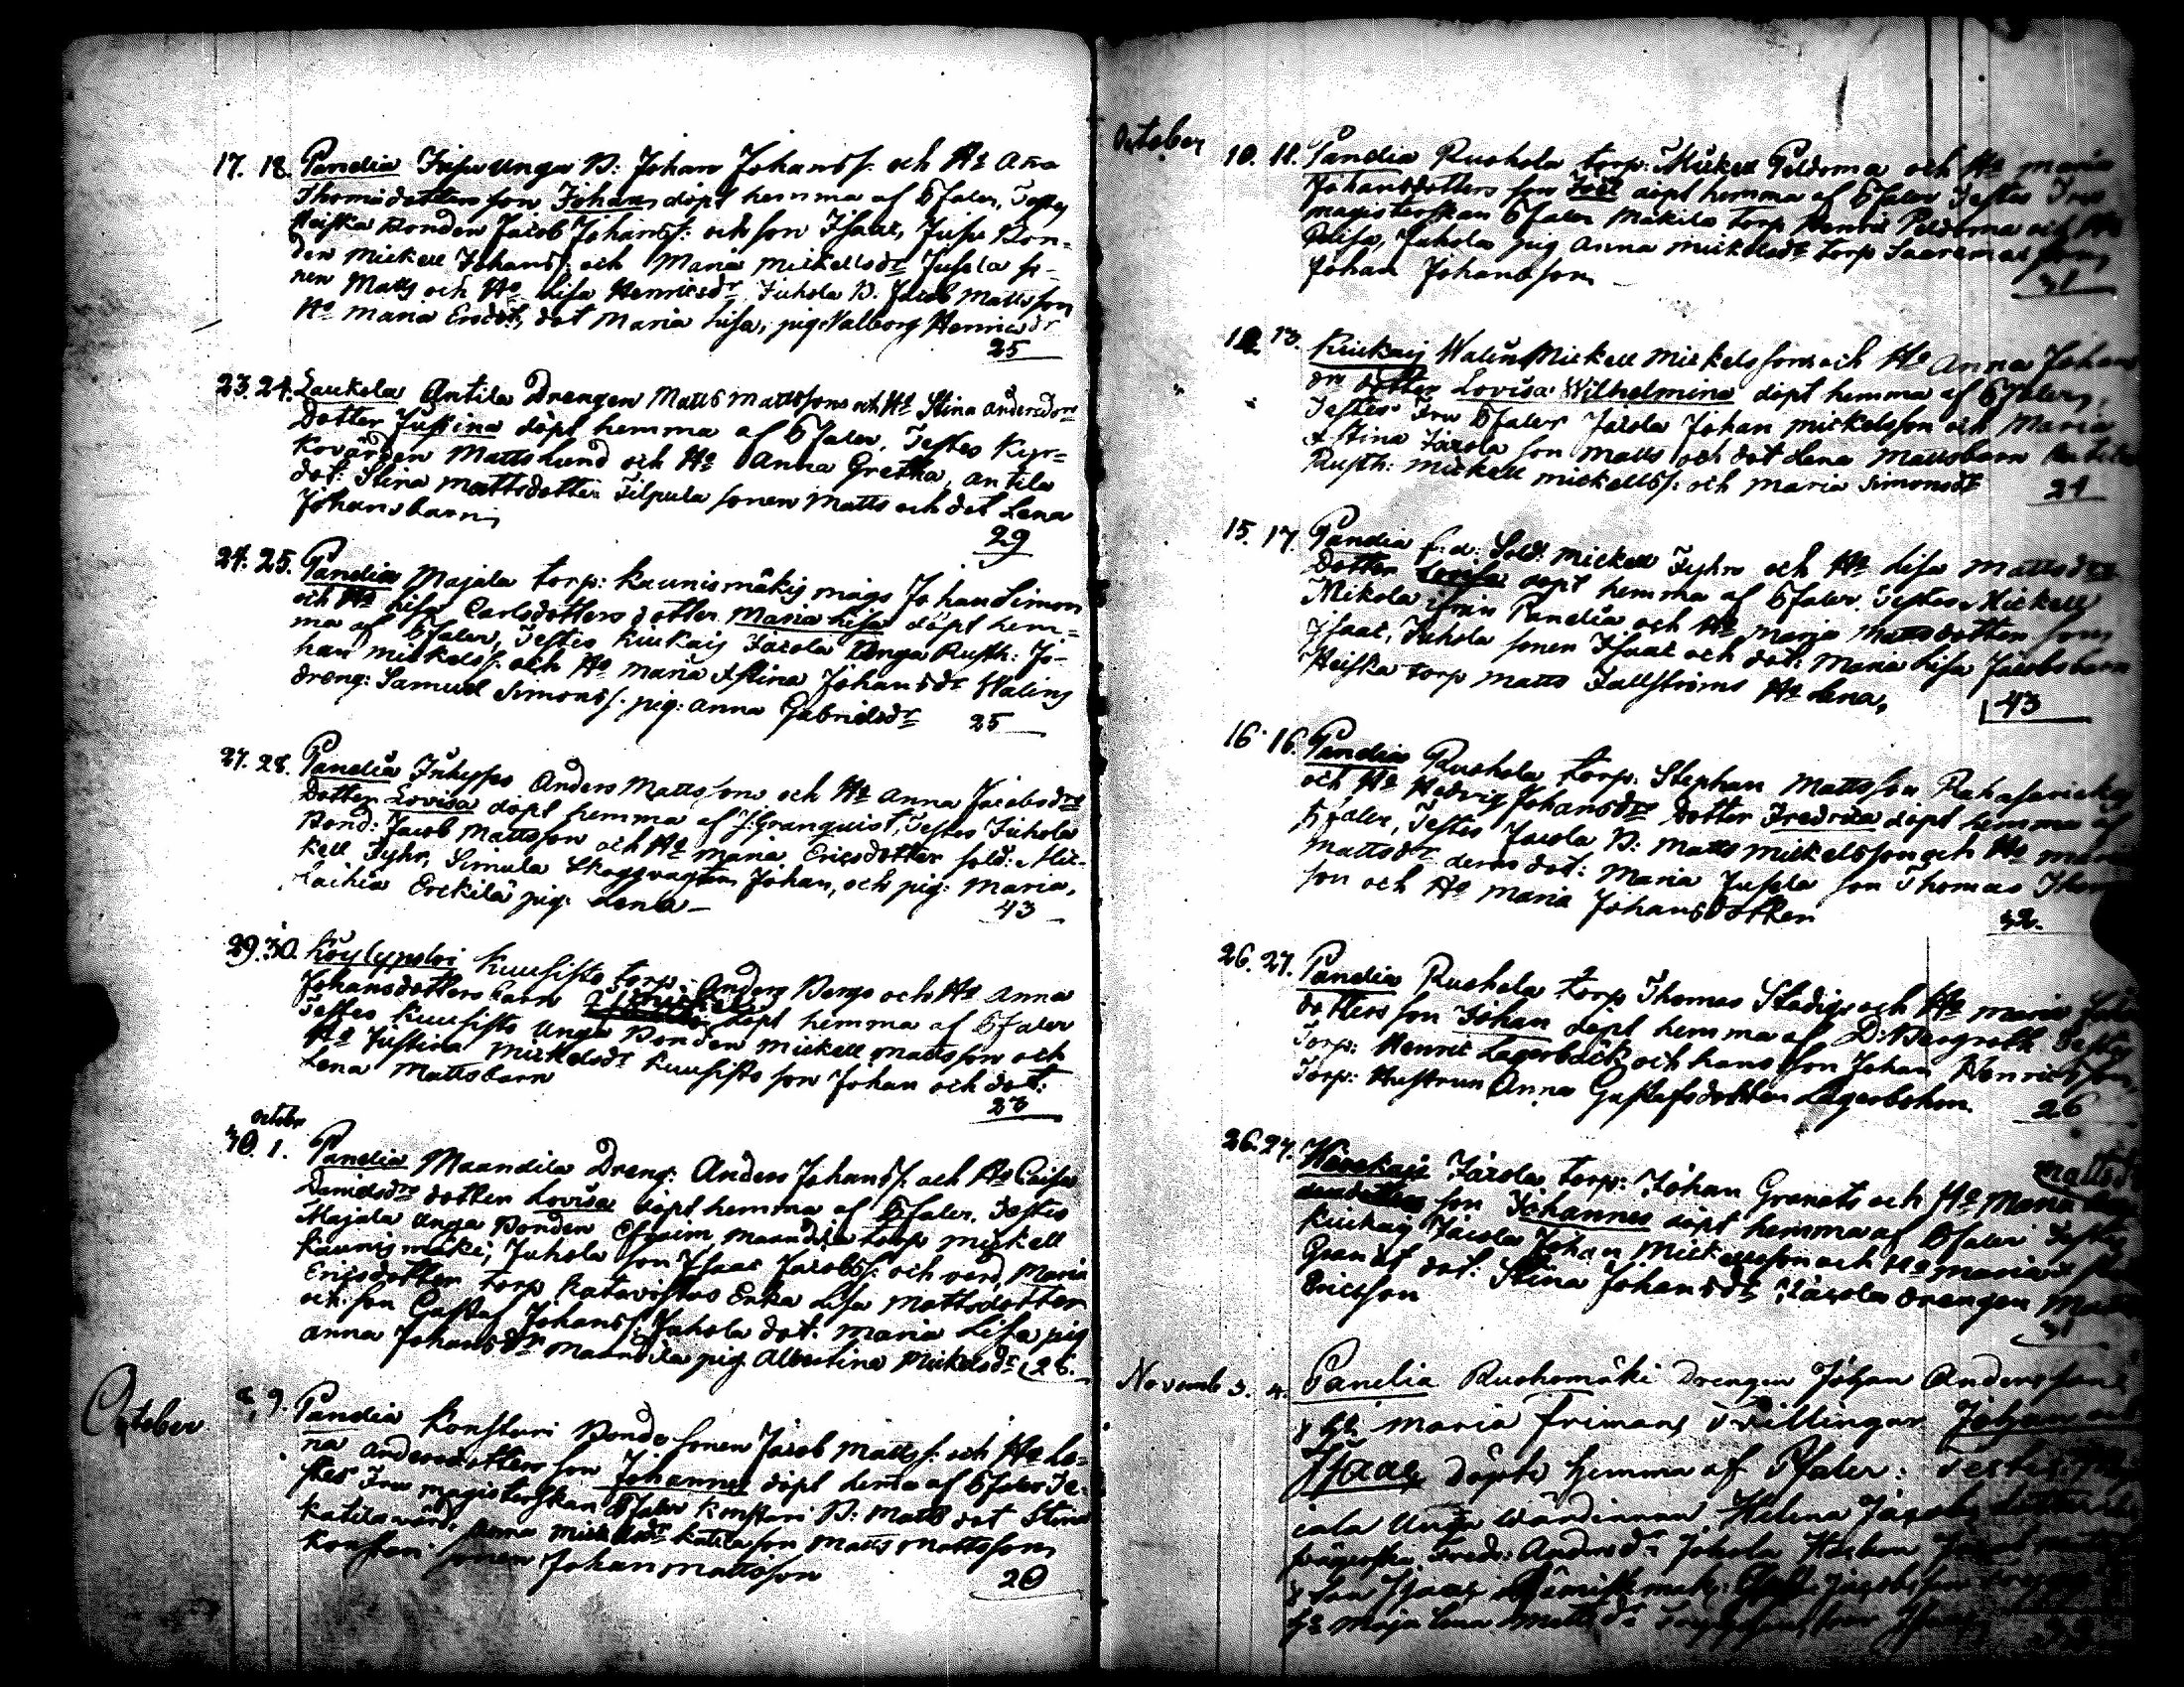 17. 18. Panelia Jussi Unga B: Johan Johanss: och Ho Aña
Thomædotters son Johan, döpt hemma af Pfaler, Testes
Heiska Bonden Jacob Johanss: och son Isaac, Jussi Bon-
den Mickell Johanss: och Maria Mickellsdr Jussila so-
nen Matts och Ho Lisa Henricsdr, Juhola B. Jacob Mattsson
Ho Maria Ericsdt, dot Maria Lisa, pig: Valborg Henricsdr
25
23. 24. Laukola Antila Drengen Matts Mattssons och Ho Stina Andersdrs
Dotter Justina döpt hemma af Pfaler, Testes Kyr-
kovärden Matts Lund och Ho Anna Gretha, Antila
dot: Stina Mattsdotter Filpula sonen Matts och dot Lena
Johansbarn,
29
24. 25. Panelia Majala torp: Kaunismäki mågs Johan Simon
och Ho Lisa Carlsdotters dotter Maria Lisa döpt hem-
ma af Pfaler, Testes Kiukais Järola Unga Rusth: Jo-
han Mickelss: och Ho Maria Stina Johansdr Walins
dreng: Samuel Simonss: pig: Anna Gabrielsdr 25
27. 28. Panelia Juhypps Anders Mattssons och Ho Anna Jacobsdrs
Dotter Lovisa döpt hemma af J: Granquist, Testes Juhola
Bond: Jacob Mattsson och Ho Maria Ericsdotter sold: Mic-
kell Fyhr, Simula Skogvagtm Johan, och pig: Maria,
Erckilä pig: Lena –
43
29. 30. Köylypolvi Kuusisto torp: Anders Bergs och Ho Anna
Johansdotters barn döpt hemma af Pfaler
Testes Kuusisto Unga Bonden Mickell Mattsson och
Ho Justina Mickelsdr Kuusisto son Johan och dot:
Lena Mattsbarn
23
octobr
30. 1. Panelia Maandila Dreng: Anders Johanss: och Ho Caisa
Danielsdrs dotter Lovisa döpt hemma af Pfaler. Testes
Majala Unga Bonden Efraim, Maandila torp Mickell
Kaunismäki, Juhola son Isaac Jacobss: och värd, Maria
Ericsdotter torp Katavistos Enka Lisa Mattsdotter
och son Gustaf Johanss: Juhola dot: Maria Lisa pig
Anna Johansdr Maandila pig Albertina Mickelsdr 26.
October 8. 9. Panelia Konstari Bonde sonen Jacob Mattss: och Ho Le-
na Andersdotters son Johannes döpt hemma af Pfaler Te-
stes Fru magisterskan Pfaler Konstari B: Matts dot Stina
Katila värd: Anna Mickelsdr Katila son Matts Mattsson
Konstari sonen Johan Mattsson
20
October 10. 11. Panelia Ruohola torp: Mickell Peldoma och Ho Maria
Johansdotters son döpt hemma af Pfaler Testes Fru
magisterskan Pfaler Mäkilä torp Henric Peldoma och Ho
Caisa, Juhola pig Anna Mickelsdr torp Saaremas son
Johan Johansson
31
12. 13. Kiukais Walins Mickell Mickelssons och Ho Anna Johans
drs dotter Lovisa Wilhelmina döpt hemma af Pfaler,
Testes Fru Pfaler Järola Johan Mickelsson och Maria
Stina Järola son Matts och dot Lena Mattsbarn Antila
Rusth: Mickell Mickellss: och Maria Simonsdr
24
15. 17. Panelia f:d: Sold: Mickell Fyhrs och Ho Lisa Mattsdrs
Dotter Lovisa döpt hemma af Pfaler. Testes Mickell
Nikola ifrån Panelia och Ho Maria Mattsdotter son
Isaac, Juhola sonen Isaac och dot: Maria Lisa Jacobsbarn
Heiska torp Matts Fallströms Ho Lena,
43
16. 16. Panelia Ruohola torp: Stephan Mattsson
och Ho Hedvig Johansdrs Dotter Fredrica döpt hemma af
Pfaler, Testes Järola B: Matts Mickelsson och Ho Maria
Mattsdr deras dot: Maria Jussila son Thomas
son och Ho Maria Johansdotter
32.
26. 27. Panelia Ruohola torp Thomas Stadigs och Ho Maria
dotters son Johan döpt hemma af D: Bergroth Testes
Torp: Henric Lagerbäck och hans son Johan Henricsson,
Torp: Hustrun Anna Gustafsdotter Lagerbohm
26
26. 27. Järola torp: Johan Granats och Ho Maria Mattsd
son Johannes döpt hemma af Pfaler Testes
Kiukais Järola Johan Mickellsson och Ho Maria
dot: Stina Johansdr Järola drengen Matts
Ericsson
31
Novemb 3. 4. Panelia Ruohomäki Drengen Johan Anderssons
& Ho Maria Frimans Tvillingar Johan och
Isaac döpte hemma af Pfaler: Testes
Unga Wärdinnan Helena Jacobsdotter
Fredr: Andersdr Juhola
& son Isaac
Ho Maja Lena Mattsdr
33